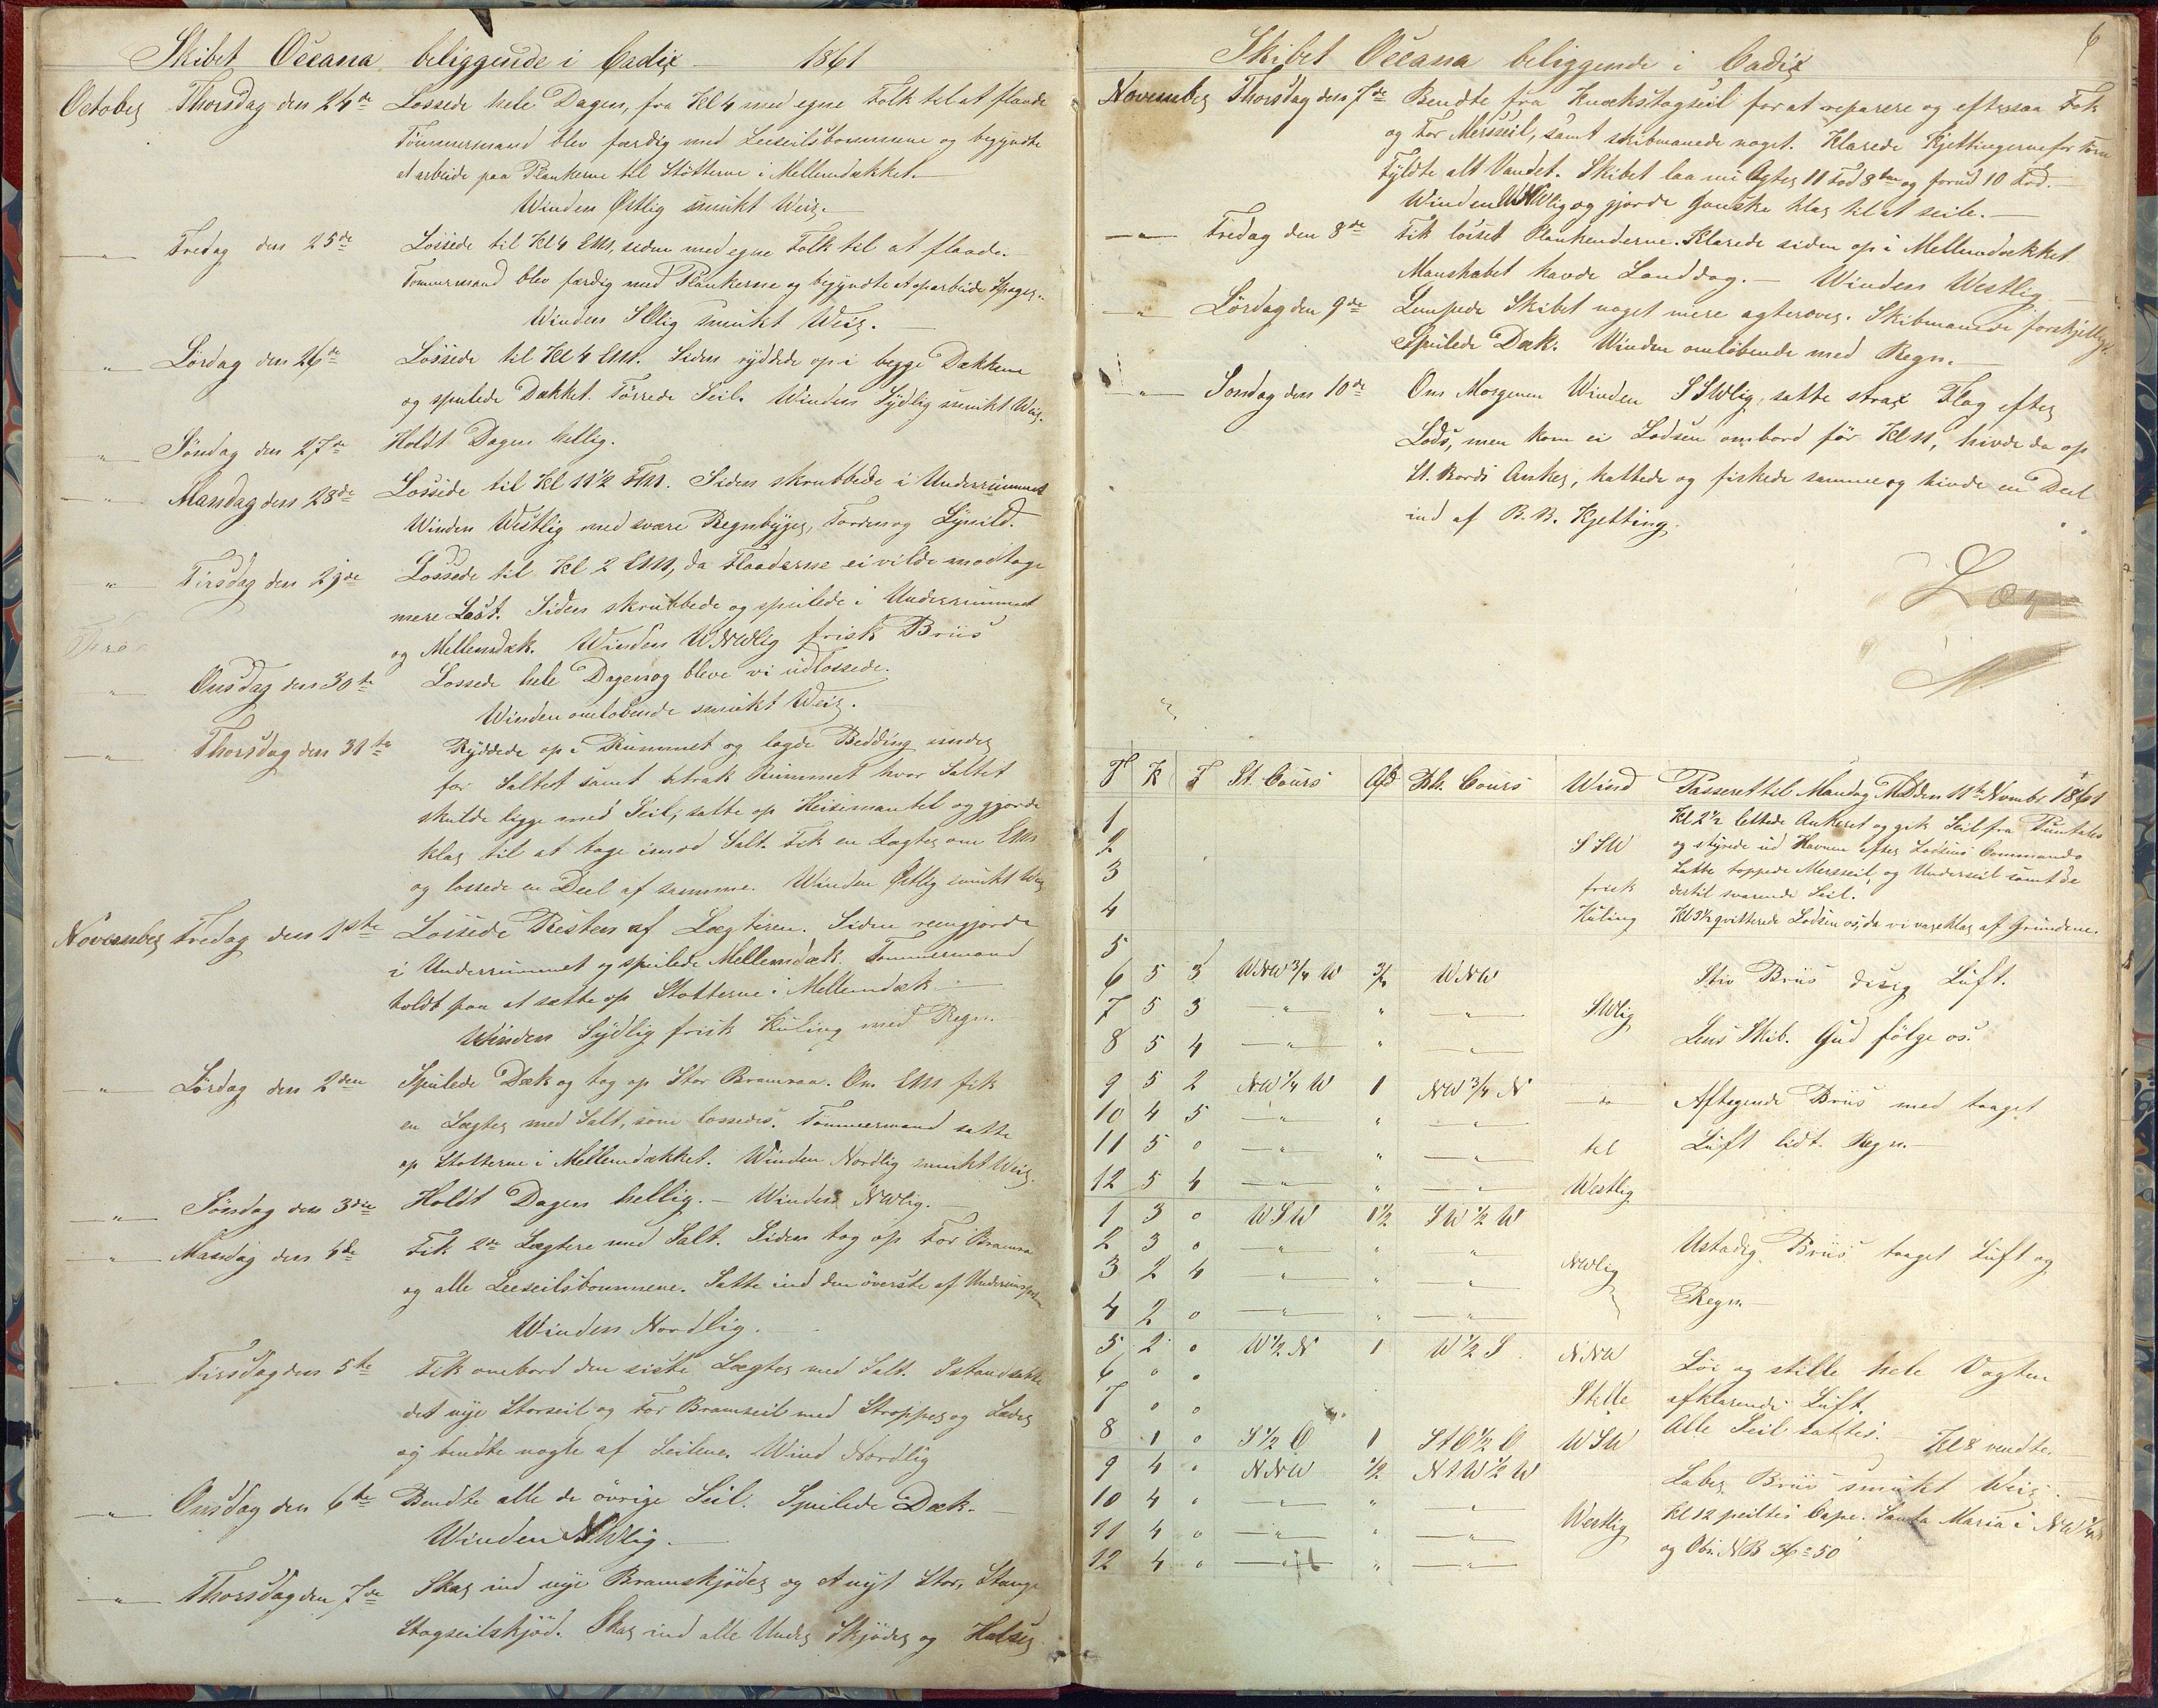 Skibet Oceana beliggende i Cadix — 1861
October Thorsdag den 24de Lossede hele Dagen, fra Kl 4 med egne Folk til at flaade
Tømmermand blev færdig med Leeseilsbommene og begyndte
at arbeide paa Plankerne til Støtterne i Mellemdækket.—
Winden Østlig smukt Weir.—
—"— Fredag den 25de Lossede til Kl 4 EM, siden med egne Folk til at flaade.—
Tømmermand blev færdig med Plankerne og begyndte at oparbeide
Winden SOlig smukt Weir.—
—"— Lørdag den 26de Lossede til Kl 4 EM. Siden ryddede op i begge Dækkene
og spulede Dækket. Tørrede Seil. Winden Sydlig smukt Weir.
—"— Søndag den 27de Holdt Dagen hellig.
—"— Mandag den 28de Lossede til Kl 11½ FM. Siden skrubbede i Underrummet
Winden Westlig med svære Regnbyger, Torden og Lynild.
" Tirsdag den 29de Lossede til Kl 2 EM, da Flaaderne ei vilde modtage
mere Last. Siden skrubbede og spulede i Underrummet
og Mellemdæk. Winden WNWlig frisk Briis
" Onsdag den 30te Lossede hele Dagen og bleve vi udlossede.
Winden omløbende smukt Weir.
—"— Thorsdag den 31te Ryddede op i Rummet og lagde Bedding under
for Saltet samt betrak Rummet hvor Saltet
skulde ligge med Seil, satte op Heisemantel og gjorde
klar til at tage imod Salt. Fik en Lægter om EM
og lossede en Deel af samme. Winden Østlig smukt Weir
November Fredag den 1ste Lossede Resten af Lægteren. Siden reengjorde
i Underrummet og spulede Mellemdæk. Tømmermand
holdt paa at sætte op Støtterne i Mellemdæk —
Winden Sydlig frisk Kuling med Regn.—
" Lørdag den 2den Spulede Dæk og tog op Stor Bramraa. Om EM fik
en Lægter med Salt, som lossedes. Tømmermand satte
op Støtterne i Mellemdækket. Winden Nordlig smukt Weir.
—"— Søndag den 3die Holdt Dagen hellig.— Winden NWlig.—
—"— Mandag den 4de Fik 2de Lægtere med Salt. Siden tog op For Bramraa
og alle Leeseilsbommene. Satte ind den øverste af
Winden Nordlig.—
—"— Tirsdag den 5te Fik ombord den sidste Lægter med Salt. Istandsatte
det nye Storseil og For Bramseil med Stropper og Læder
og bendte nogle af Seilene. Wind Nordlig
—"— Onsdag den 6te Bendte alle de øvrige Seil. Spulede Dæk.—
Winden NWlig.—
—"— Thorsdag den 7de Skar ind nye Bramskjøder og et nyt Stor, Stænge
Stagseilskjød. Skar ind alle Under Skjøder og Halser
6
Skibet Oceana beliggende i Cadix
November Thorsdag den 7de Bendte fra Knækstagseil for at reparere og eftersaa Fok
og For Mersseil, samt skibmanede noget. Klarede Kjettingerne for Törn
Fyldte alt Vandet. Skibet laa nu Agter 11 Fod 8 tm og forud 10 Fod.—
Winden WNWlig og gjorde ganske klar til at seile.—
—"— Fredag den 8de Fik losset Plankenderne. Klarede siden op i Mellemdækket
Manskabet havde Landdag.— Winden Westlig —
—"— Lørdag den 9de Lempede Skibet noget mere agterover. Skibmanede forskjelligt.
Spulede Dæk. Winden omløbende med Regn.—
—"— Søndag den 10de Om Morgenen Winden SSWlig, satte strax Flag efter
Lods, men kom ei Lodsen ombord før Kl 11, hivde da op
St. Bords Anker, kattede og fiskede samme og hivde en Deel
ind af B.B. Kjetting.
T K F St. Cours Afd Bh. Cours Wind Passeret til Mandag Md den 11te Novembr. 1861
1 Kl 2½ lettede Ankeret og gik Seil fra Puntales
2 SSW og styrede ud Havnen efter Lodsens Commando
3 Satte toppede Mersseil, og Underseil samt de
4 frisk dertil svarende Seil.
Kuling Kl 3½ qvitterede Lodsen os, da vi vare klar af Grundene.
5
6 5 3 WNW¾W ¾ WNW Stiv Briis disig Luft.
7 5 3 —"— " —"— SWlig
8 5 4 —"— " —"— Lens Skib. Gud følge os.
9 5 2 NW¼W 1 NW¾N —"— Aftagende Briis med taaget
10 4 5 —"— " —"—
11 5 0 —"— " —"— til Luft lidt Regn.—
12 5 4 —"— " —"— Westlig
1 3 0 WSW 1½ SW½W
2 3 0 —"— " " NWlig Ustadig Briis taaget Luft og
3 2 4 —"— " "
4 2 0 —"— " —"— Regn —
5 2 0 W½N 1 W½S NNW Løi og stille hele Vagten
6 0 0
7 0 0 Stille afklarende Luft.
8 1 0 S½O 1 StO½O WSW Alle Seil sattes.— Kl 8 vendte.
9 4 0 NNW ½ NtW½W Laber Briis smukt Weir.—
10 4 0 —"— " —"—
11 4 0 —"— " —"— Westlig Kl 12 peiltes Cape. Santa Maria i
12 4 0 —"— " —"— og Obs. NB 36° 50'